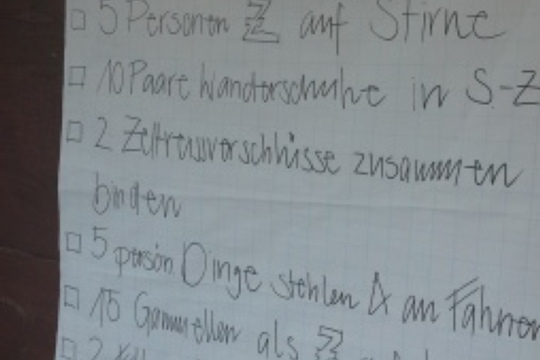 □ 5 Personen Z auf Stirne
□ 10 Paare Wanderschuhe in S-Z
□ 2 Zeltreissverschlüsse zusammen
binden
□ 5 persön. Dinge stehlen & an Fahnen
□ 15 Gamellen als Z
□ 2